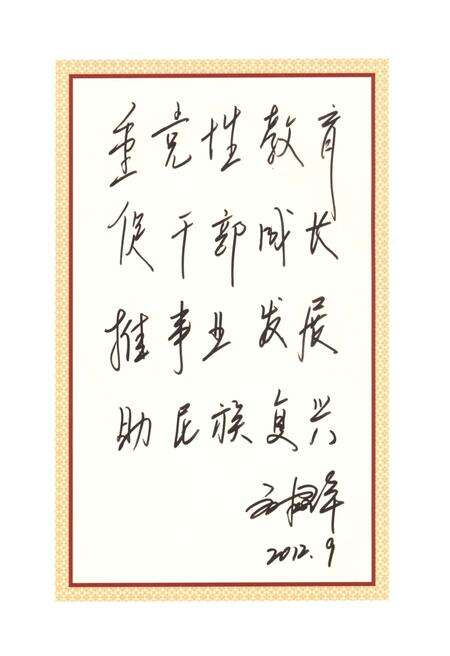 重党性教育
促干部成长
推事业发展
助民族复兴
2012.9